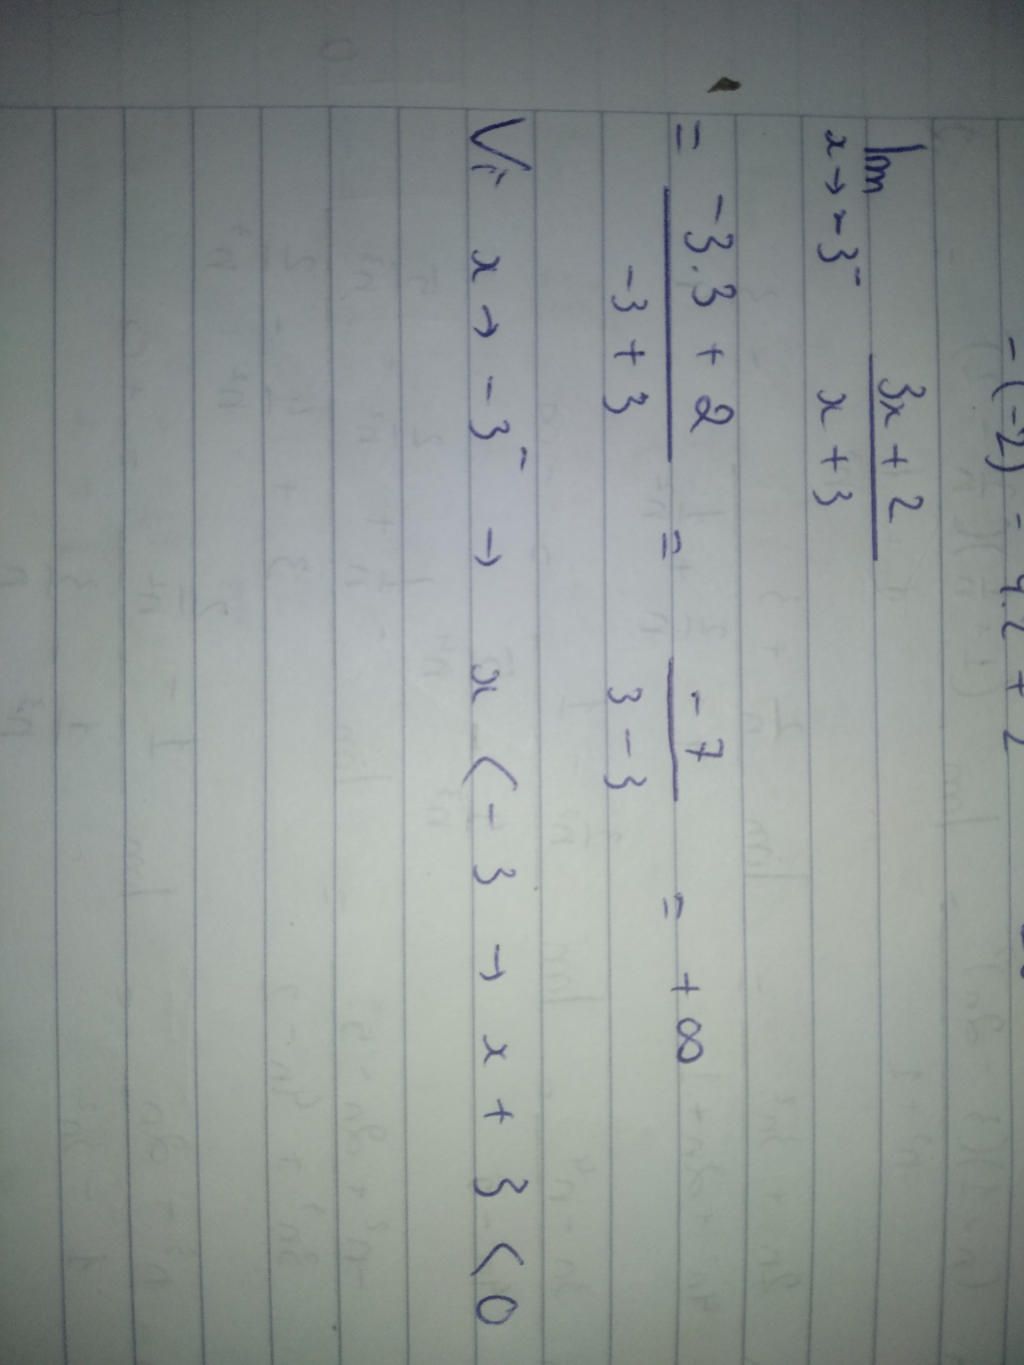 -(-2) - 4.2 + 2
lim 3x + 2
x → -3⁻ x + 3
= -3.3 + 2 = -7 = +∞
-3 + 3 3 - 3
Vì x → -3⁻ → x < -3 → x + 3 < 0